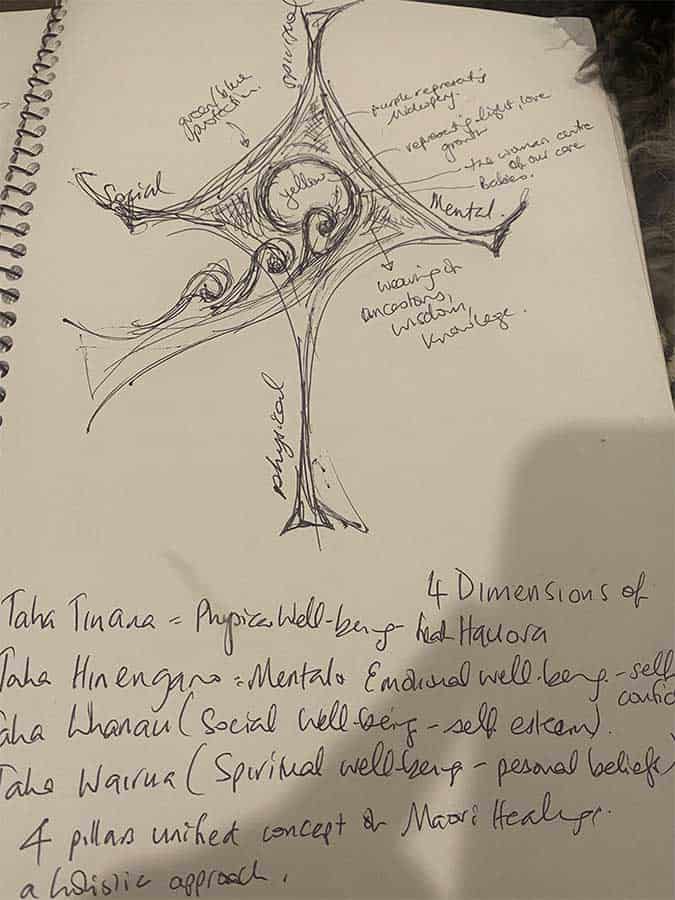 spiritual
green/blue
protection.
purple represents
midwifery.
representing light, love
growth
the woman centre
of our care
Babies.
Social
yellow
Mental.
weaving of
ancestors,
wisdom,
knowledge.
physical
4 Dimensions of
Hauora
Taha Tinana = Physical Well-being -
Taha Hinengaro = Mental & Emotional well-being - self
confid
Taha Whanau (Social well-being - self esteem).
Taha Wairua (Spiritual well-being - personal beliefs)
4 pillars unified concept of Maori Healing.
a holistic approach.